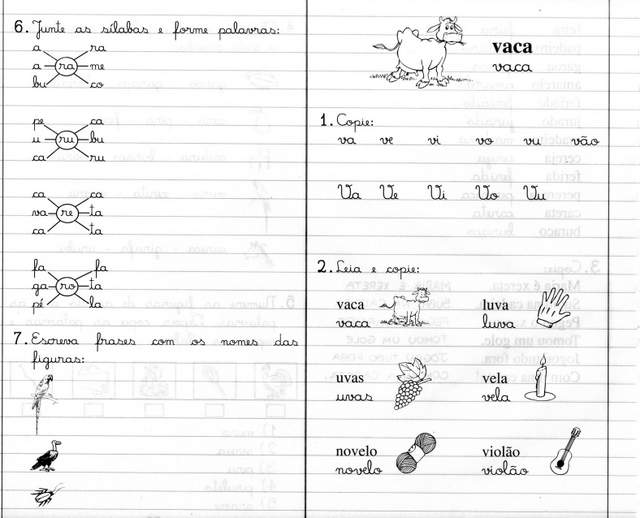 6. Junte as sílabas e forme palavras:
a ra
a ra me
bu co
pe ca
u ru bu
ca ru
ca ca
va re ta
ca ta
fa fa
ga ro ta
pé la
7. Escreva frases com os nomes das
figuras:
vaca
vaca
1. Copie:
va ve vi vo vu vão
Va Ve Vi Vo Vu
2. Leia e copie:
vaca luva
vaca luva
uvas vela
uvas vela
novelo violão
novelo violão